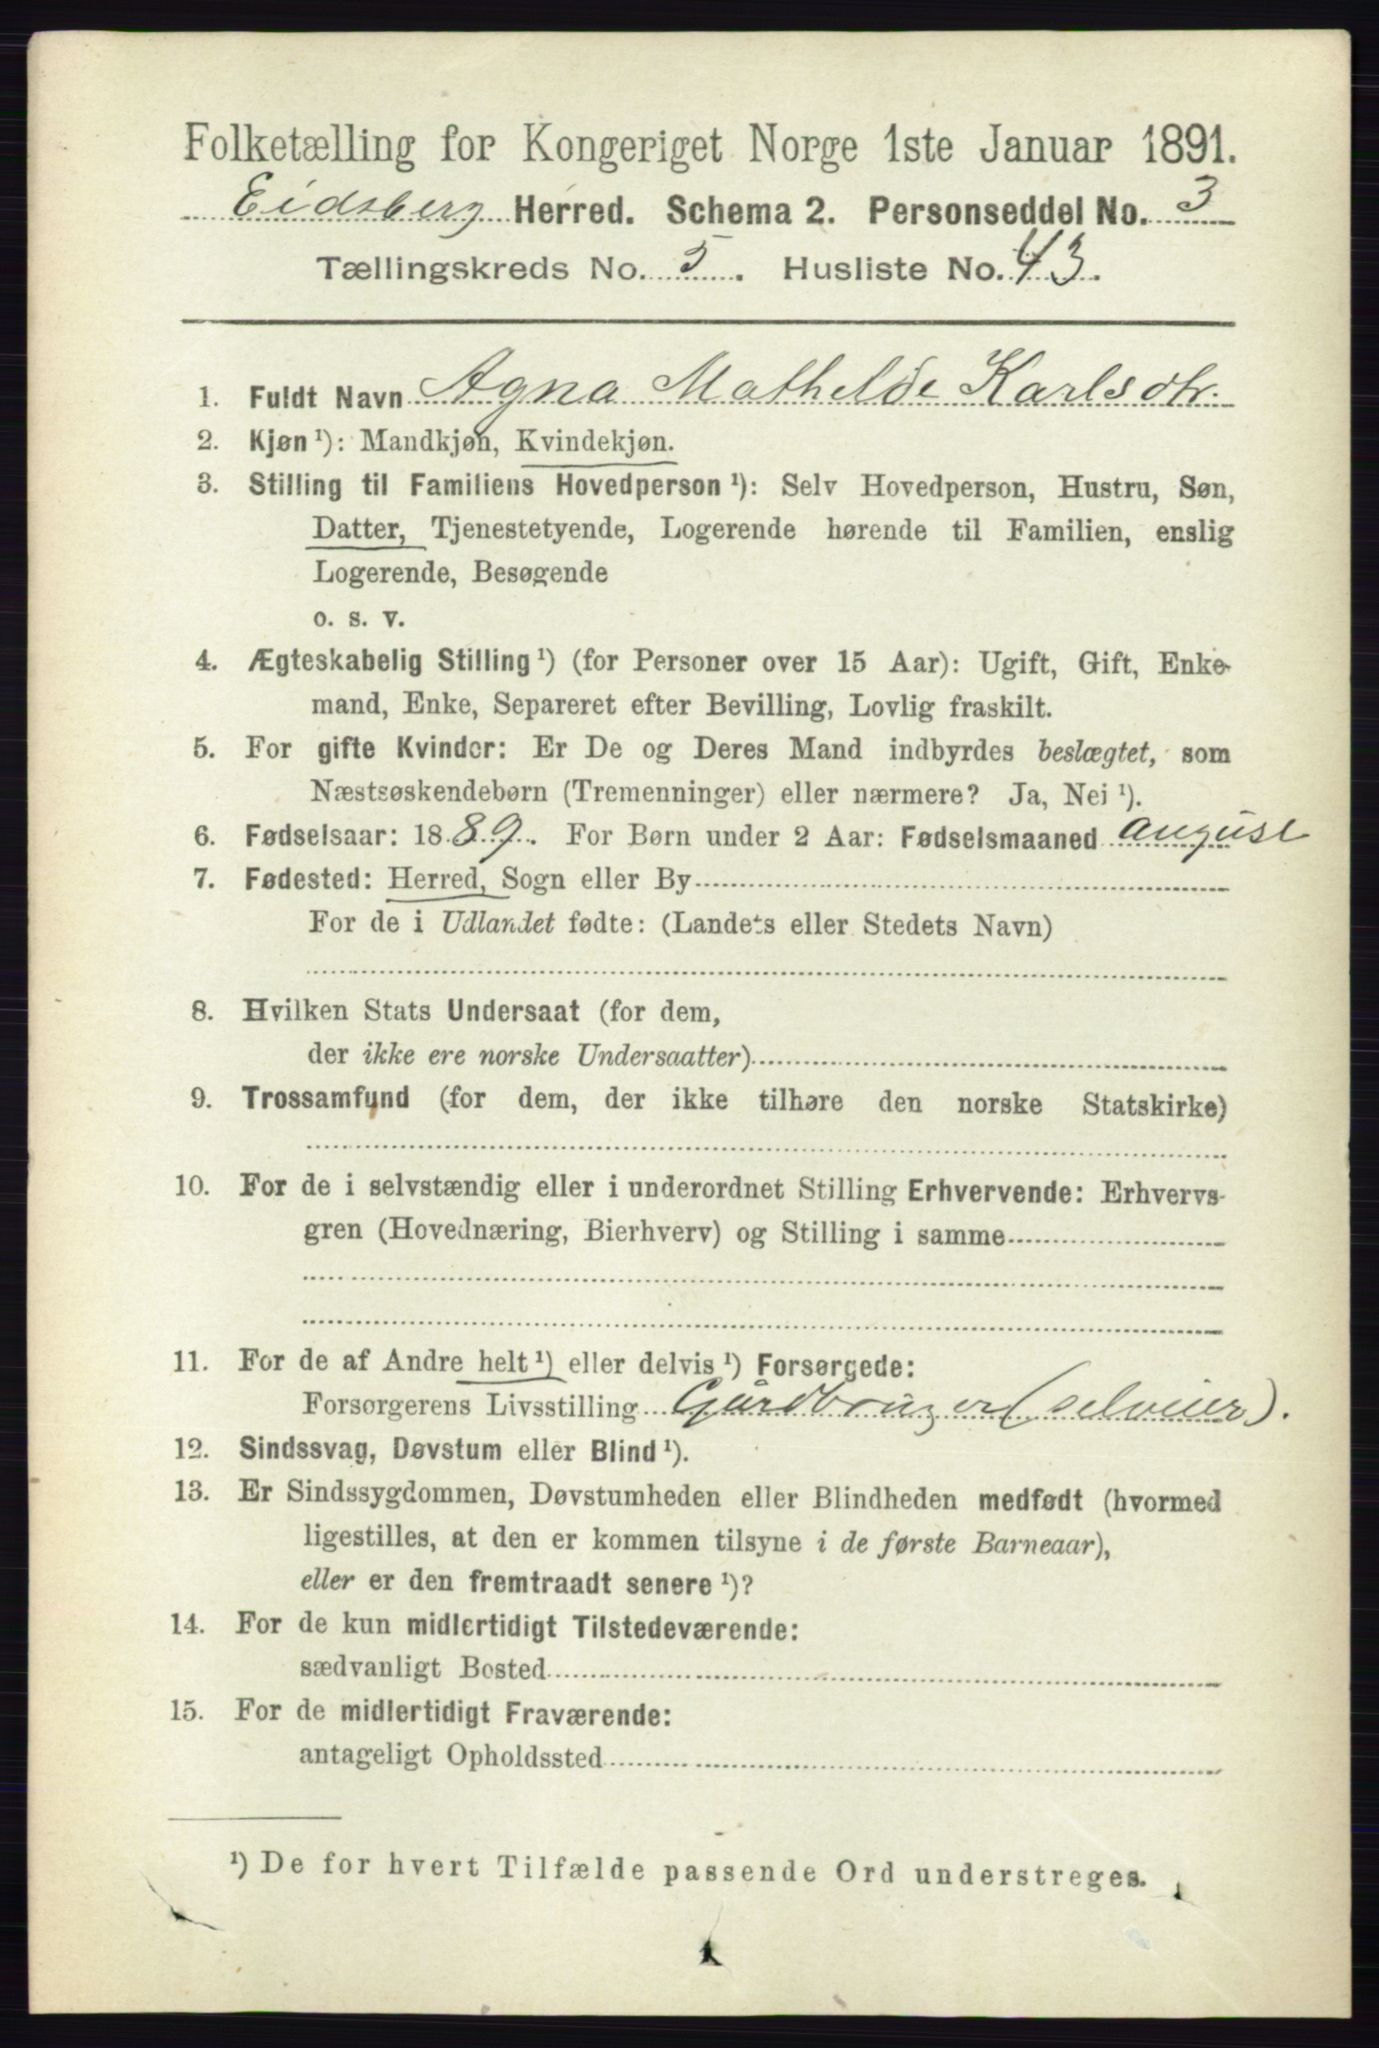 Folketælling for Kongeriget Norge 1ste Januar 1891.
Eidsberg Herred. Schema 2. Personseddel No. 3
Tællingskreds No. 5. Husliste No. 43.
1. Fuldt Navn Agna Mathelde Karlsdtr.
2. Kjøn ¹): Mandkjøn, Kvindekjøn.
3. Stilling til Familiens Hovedperson ¹): Selv Hovedperson, Hustru, Søn,
Datter, Tjenestetyende, Logerende hørende til Familien, enslig
Logerende, Besøgende
o. s. v.
4. Ægteskabelig Stilling ¹) (for Personer over 15 Aar): Ugift, Gift, Enke-
mand, Enke, Separeret efter Bevilling, Lovlig fraskilt.
5. For gifte Kvinder: Er De og Deres Mand indbyrdes beslægtet, som
Næstsøskendebørn (Tremenninger) eller nærmere? Ja, Nei ¹).
6. Fødselsaar: 1889. For Børn under 2 Aar: Fødselsmaaned august
7. Fødested: Herred, Sogn eller By
For de i Udlandet fødte: (Landets eller Stedets Navn)
8. Hvilken Stats Undersaat (for dem,
der ikke ere norske Undersaatter)
9. Trossamfund (for dem, der ikke tilhøre den norske Statskirke)
10. For de i selvstændig eller i underordnet Stilling Erhvervende: Erhvervs-
gren (Hovednæring, Bierhverv) og Stilling i samme
11. For de af Andre helt ¹) eller delvis ¹) Forsørgede:
Forsørgerens Livsstilling Gårdbruger (selveier).
12. Sindssvag, Døvstum eller Blind ¹).
13. Er Sindssygdommen, Døvstumheden eller Blindheden medfødt (hvormed
ligestilles, at den er kommen tilsyne i de første Barneaar),
eller er den fremtraadt senere ¹)?
14. For de kun midlertidigt Tilstedeværende:
sædvanligt Bosted
15. For de midlertidigt Fraværende:
antageligt Opholdssted
¹) De for hvert Tilfælde passende Ord understreges.